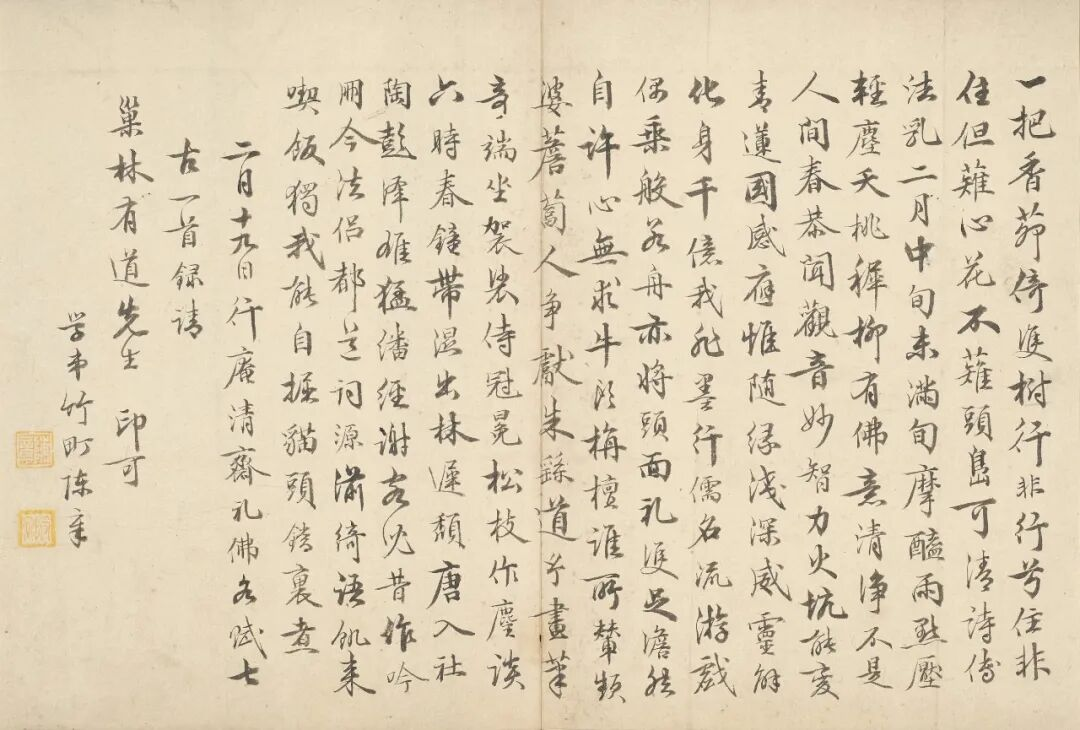 一把香茆倚雙樹行非行兮住非
住但薙心花不薙頭島可清詩傳
法乳二月中旬未滿旬摩醯雨點壓
輕塵夭桃穉柳有佛意清淨不是
人間春恭聞觀音妙智力火坑能變
青蓮國感應惟随緣淺深威靈解
化身千億我非墨行儒名流游戲
偶乘般若舟亦将頭面礼雙足澹然
自許心無求牛頭栴檀誰所輦頻
婆薝蔔人争獻朱繇道子畫筆
奇端坐袈裟侍冠冕松枝作麈談
六時春鐘帶濕出林遲頹唐入社
陶彭澤雄猛潘經謝客兒昔作吟
朋今法侶都是詞源瀚綺語飢来
喫飯獨我能自掘貓頭鐺裏煮
二月十九日行庵清齋礼佛各賦七
古一首録請
巢林有道先生 印可
学弟竹町陈章